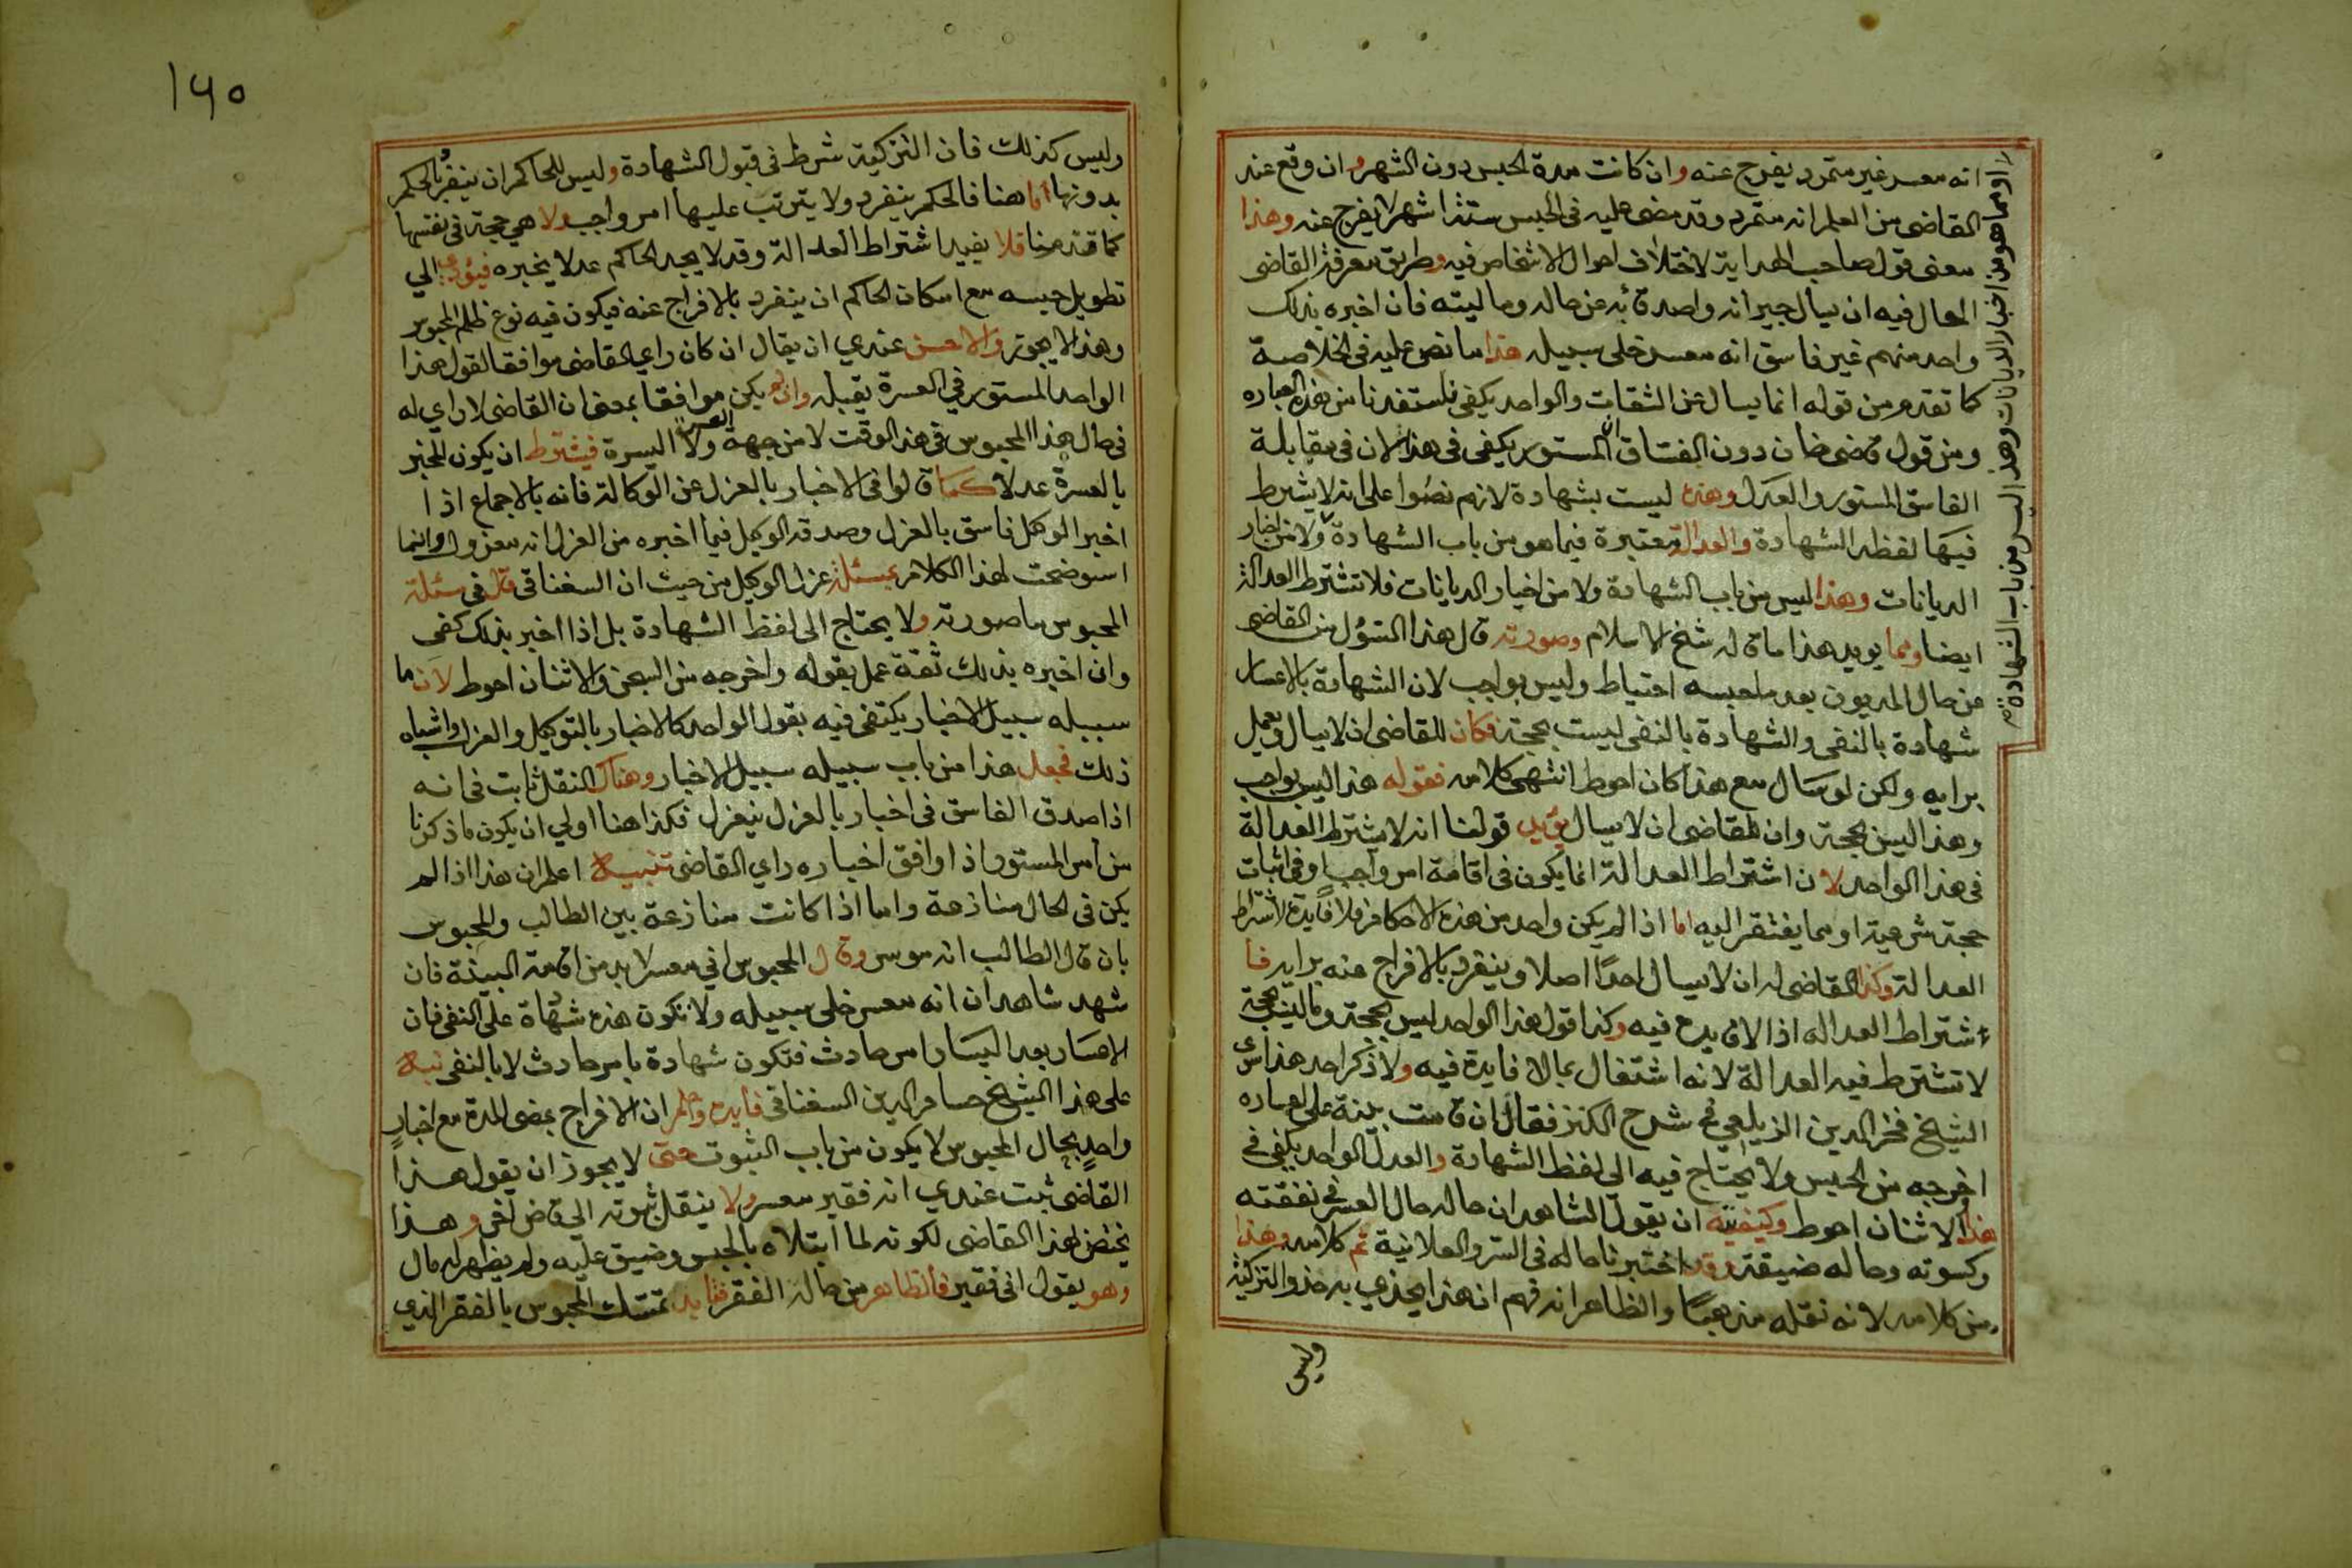 انه معسر غير متمرد يفرج عنه وان كانت مدة الحبس دون الشهر وان وقع عند
القاضي من العلم انه متمرد وقد مضى عليه في الحبس ستة اشهر لا يفرج عنه وهذا
معنى قول صاحب الهداية لاختلاف احوال الاشخاص فيه وطريق معرفة القاضي
الحال فيه ان يسال جيرانه واصدقائه عن حاله وماليته فان اخبره بذلك
واحد منهم غير فاسق انه معسر خلى سبيله هذا ما نص عليه في الخلاصة
كما تقدم من قوله انما يسال عن الثقات والواحد يكفي فاستفدنا من هذه العباره
ومن قول قاضي خان دون الفساق ان المستور يكفي في هذا لان في مقابلة
الفاسق المستور والعدل وهذه ليست بشهادة لازم نصوا على انه لا يشترط
فيها لفظه الشهادة والعدالة معتبرة فيما هو من باب الشهادة ولا من اخبار
الديانات وهذا ليس من باب الشهادة ولا من اخبار الديانات فلا تشترط العدالة
ايضا ومما يويد هذا ما قاله شيخ الاسلام وصورته قال هذا السؤل من القاضي
عن حال المديون بعد ما حبسه احتياط وليس بواجب لان الشهادة بالاعسار
شهادة بالنفي والشهادة بالنفي ليست بحجة فكان للقاضي ان لا يسال ويعمل
برايه ولكن لو سال مع هذا كان احوط انتهى كلامه فقوله هذا ليس بواجب
وهذا ليس بحجة وان للقاضي ان لا يسال يؤيد قولنا انه لا يشترط العدالة
في هذا الواحد لان اشتراط العدالة انما يكون في اقامة امر واجب او في اثبات
حجة شرعية او مما يفتقر اليه اما اذا لم يكن واحد من هذه الاحكام فلا فايدة لاشتراط
العدالة وكذا القاضي له ان لا يسال احدًا اصلا وينفرد بالافراج عنه برايه فا
شتراط العداله اذا لا فايدة فيه وكذا قول هذا الواحد ليس بحجة وما ليس بحجة
لا تشترط فيه العدالة لانه اشتغال بما لا فايدة فيه ولا ذكر احد هذا سوى
الشيخ فخر الدين الزيلعي في شرح الكنز فقال ان قامت بينة على اعساره
اخرجه من الحبس ولا يحتاج فيه الى لفظ الشهادة والعدل الواحد يكفي في
هذا والاثنان احوط وكيفيته ان يقول الشاهد ان حاله حال المعسر في نفقته
وكسوته وحاله ضيقة وقد اختبرنا حاله في السر والعلانية تم كلامه وهذا
من كلامه لانه نقله مذهبًا والظاهر انه فهم ان هذا يحذي به حذو التزكية
وليس
او مما هو من اخبار الديانات وهذا ليس من باب الشهادة
١٤٥
وليس كذلك فان التزكية شرط في قبول الشهادة وليس للحاكم ان ينفرد بالحكم
بدونها اما هنا فالحكم ينفرد ولا يترتب عليها امر واجب ولا هي حجة في نفسها
كما قدمنا فلا يفيد اشتراط العدالة وقد لا يجد الحاكم عدلا يخبره فيؤدي الي
تطويل حبسه مع امكان الحاكم ان ينفرد بالافراج عنه فيكون فيه نوع ظلم المحبوس
وهذا لا يجوز والاحسن عندي ان يقال ان كان راي القاضي موافقا لقول هذا
الواحد المستور في العسرة يقبله وان لم يكن موافقا بمعنى ان القاضي لا راي له
في حال هذا المحبوس في هذا الوقت لا من جهة العسرة ولا اليسرة فيشترط ان يكون المخبر
بالعسرة عدلا كما قالوا في الاخبار بالعزل عن الوكالة فانه بالاجماع اذا
اخبر الوكيل فاسق بالعزل وصدقه الوكيل فيما اخبره من العزل انه معزول وانما
استوضحت لهذا الكلام بمسئلة عزل الوكيل من حيث ان السغناقي قال في مسئلة
المحبوس ما صورته ولا يحتاج الى لفظ الشهادة بل اذا اخبر بذلك كفى
وان اخبره بذلك ثقة عمل بقوله واخرجه من السجن والاثنان احوط لان ما
سبيله سبيل الاخبار يكتفى فيه بقول الواحد كالاخبار بالتوكيل والعزل واشباه
ذلك فجعل هذا من باب سبيله سبيل الاخبار وهناك النقل ثابت في انه
اذا صدق الفاسق في اخبار بالعزل ينعزل فكذا هنا اولي ان يكون ما ذكرنا
من امر المستور اذا وافق اخباره راي القاضي تنبيه اعلم ان هذا اذا لم
يكن في الحال منازعة واما اذا كانت منازعة بين الطالب والمحبوس
بان قال الطالب انه موسر وقال المحبوس اني معسر لابد من اقامة البينة فان
شهد شاهدان انه معسر خلى سبيله ولا تكون هذه شهادة على النفي فان
الاعسار بعد اليسار امر حادث فتكون شهادة بامر حادث لا بالنفي نبه
على هذا الشيخ حسام الدين السغناقي فايدة واعلم ان الافراج بمضي المدة مع اخبار
واحد بحال المحبوس لا يكون من باب الثبوت حتى لا يجوز ان يقول هذا
القاضي ثبت عندي انه فقير معسر ولا ينقل ثبوته الي قاض اخر وهذا
يختص لهذا القاضي لكونه لما ابتلاه بالحبس وضيق عليه ولم يظهر له مال
وهو يقول اني فقير فالظاهر من حاله الفقر فتايد تمسك المحبوس بالفقر الذي